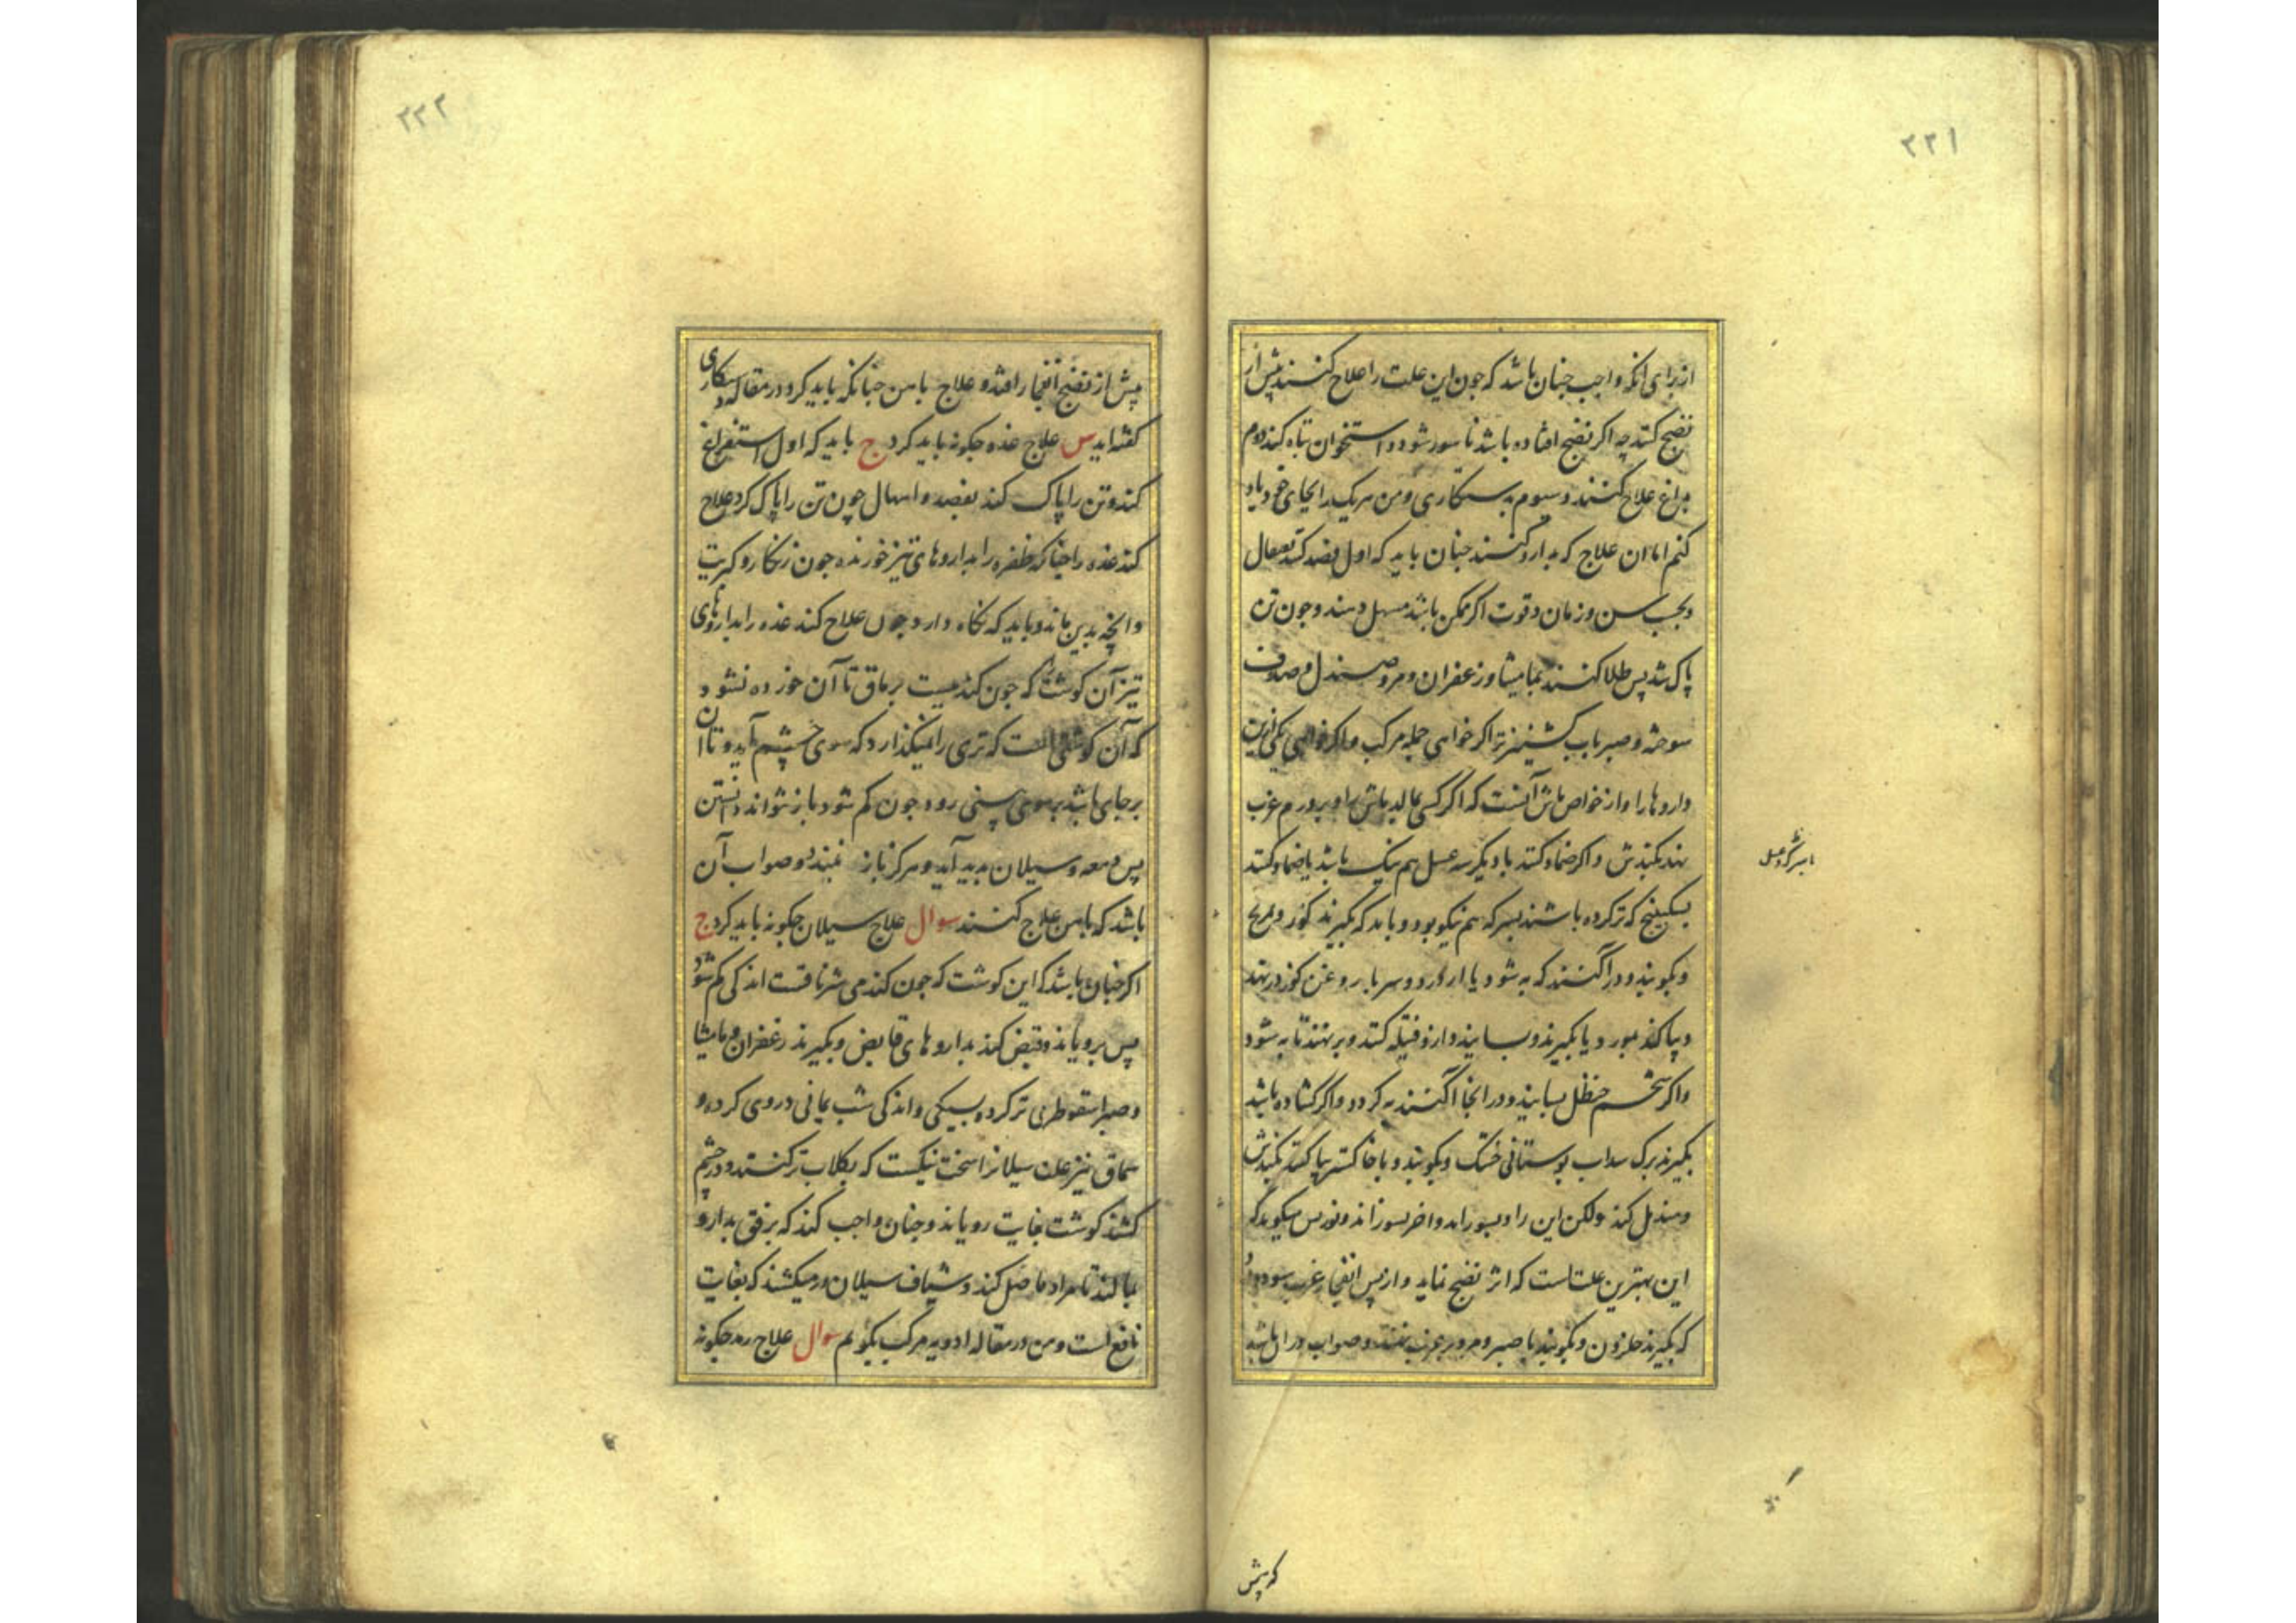 ۲۲۱
از برای انکه واجب چنان باشد که چون این علت را علاج کنند پیش از
نضج کنند چه اکر نضج افتاده باشد ناسور شود و استخوان تباه کند دوم
بداغ علاج کنند و سیوم بدستکاری و من هریک را بجای خود یاد
کنم اما ان علاج که بدارو کنند چنان باید که اول فصد کنند قیفال
و بحسب سن و زمان و قوت اکر ممکن باشد مسهل دهند و چون تن
پاک شد پس طلا کنند بمامیثا و زعفران و مر و صندل و صدف
سوخته و صبر باب کشنیز تر اکر خواهی جمله مرکب و اکر خواهی یکی ازین
داروها را و از خواص ماش آنست که اکر کسی بخاید ماش را و بر ورم غرب
نهد بکندش و اکر ضماد کنند با دیکر سه عسل هم نیک باشد یا ضماد کنند
بسکبینج که تر کرده باشند بسرکه هم نیکو بود و باید که بکیرند کوز
و بکوبند و در آکنند که به شود یا
و پاکند و یا بکیرند و بسایند و ازو فتیله کنند و بر نهند تا به شود
واکر تخم حنظل بسایند و در انجا آکنند به کردد و اکر کشاده باشد
بکیرند برک سداب بوستانی خشک و بکوبند و با خاکستر پاکند بکندش
و مندمل کند ولکن این را و بسوزاند و اخر بسوزاند و نورس میکوید که
این بهترین علتاست که اثر نضج نماید و از پس انفجار غرب سود
که بکیرند حلزون و بکوبند با صبر و مر و بر غرب نهند و صواب دران باشد
با سرکه و عسل
که پیش
۲۲۲
پیش از نضج انفجار افتد و علاج باهن چنانکه باید کرد در مقاله دستکاری
کفته اید س علاج غده چکونه باید کرد ج باید که اول استفراغ
کند و تن را پاک کند بفصد و اسهال چون تن را پاک کرد علاج
کند غده را چنانکه ظفره را بداروهای تیز خورنده چون زنکار و کبریت
وانچه بدین ماند و باید که نکاه دارد چون علاج کند غده را بداروهای
تیز آن کوشت که چون کندمیست بر ماق تا آن خورده نشود
که آن کوشتی است که تری را نمیکذارد که سوی چشم آید و تا ان
برجای باشد بر سوی بینی رود چون کم شود باز نتواند داشتن
پس دمعه و سیلان پدید آید و هرکز باز نبندد و صواب آن
باشد که باهن علاج کنند سوال علاج سیلان چکونه باید کرد ج
اکر چنان باشد که این کوشت که چون کندمی شرناقست اندکی کم شود
پس برویاند و قبض کند بداروهای قابض و بکیرند زعفران و مامیثا
و صبر اسقوطری تر کرده بسیکی و اندکی شب یمانی در وی کرده و
سماق نیز علت سیلانرا سخت نیکست که بکلاب تر کنند و در چشم
کشند کوشت بغایت رویاند و چنان واجب کند که برفق بدارو
بمالند تا مراد حاصل کند و شیاف سیلان در میکشند که بغایت
نافع است و من در مقاله ادویه مرکب بکویم سوال علاج رمد چکونه